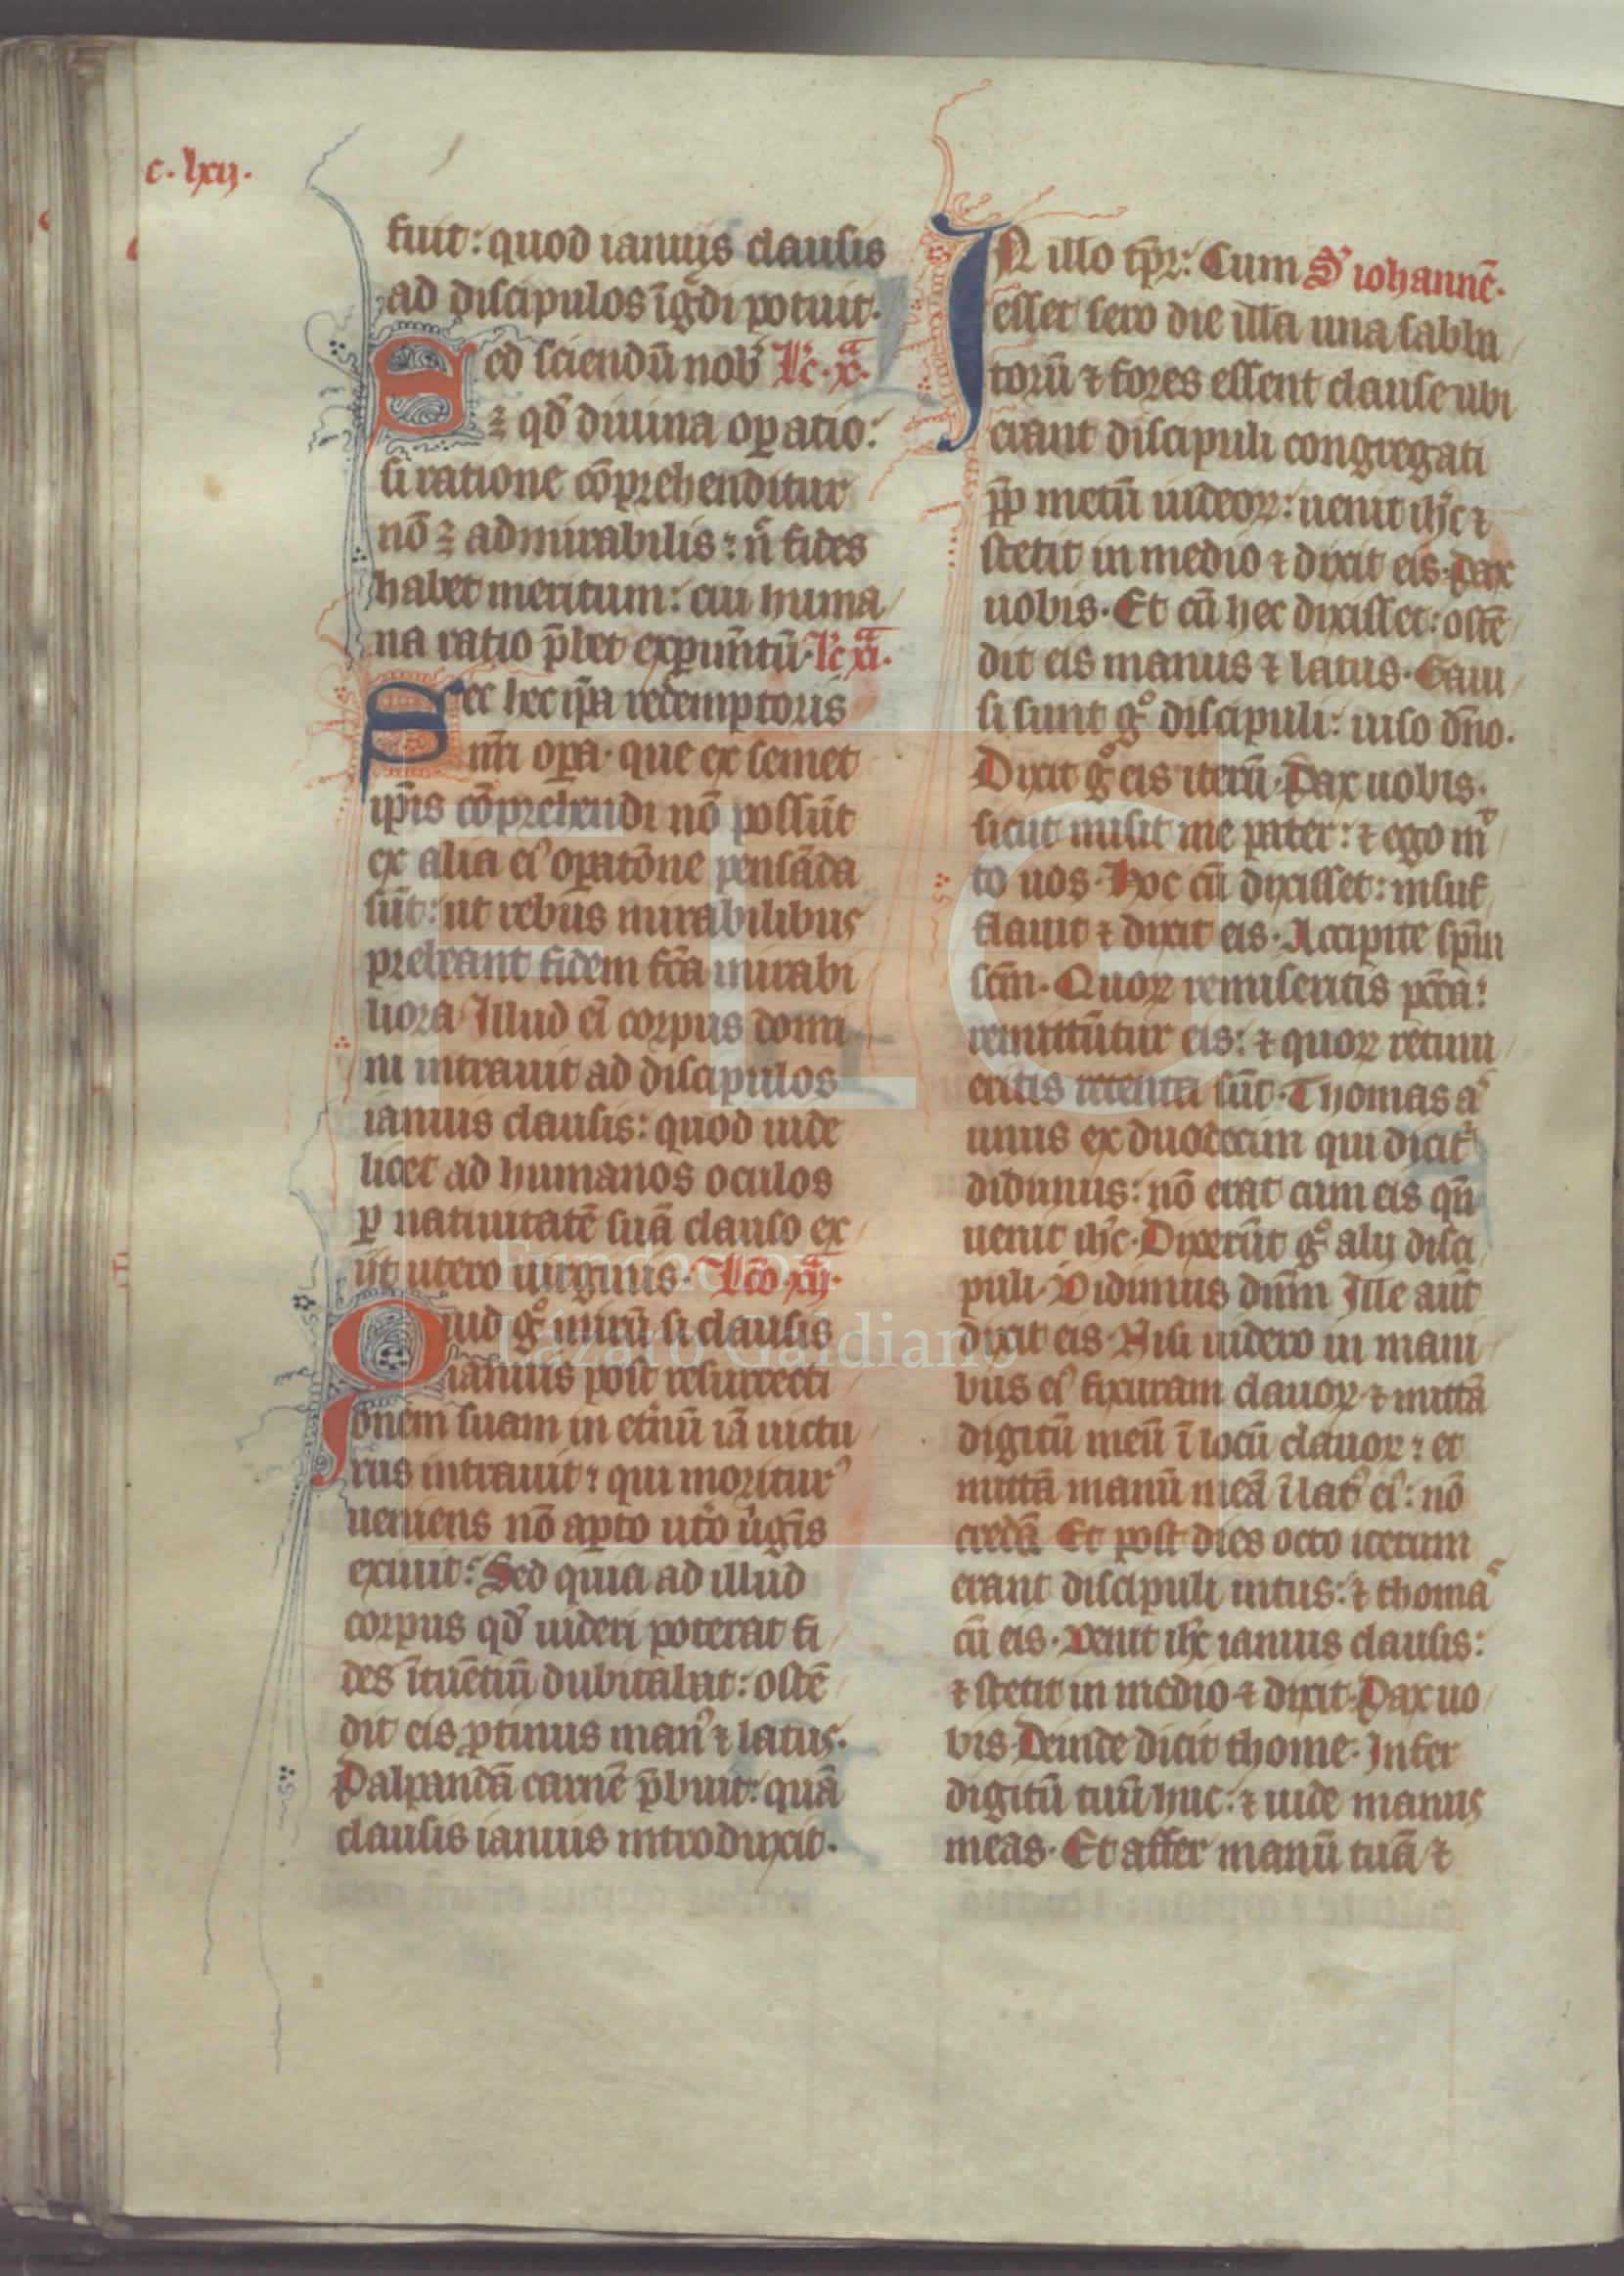 c. lxij.
fuit: quod ianuis clausis
ad discipulos īg̃di potuit.
Sed sciendū nob̾ lc̄. x̊ᵃ.
ꝫ qd̾ diuina oꝑatio:
si ratione cōprehenditur
nō ꝫ admirabilis: n̄ fides
habet meritum: cui huma
na ratio p̄bet experim̄tū. lc̄ xiᵃ.
Sec hec ip̄a redemptoris
nr̄i oꝑa. que ex semet
ip̄is cōprehendi nō possūt
ex alia ei᾿ oꝑatōne pensāda
sūt: ut rebus mirabilibus
prebeant fidem fc̄a mirabi
liora. Illud ei̾ corpus domi
ni intrauit ad discipulos
ianuis clausis: quod uide
licet ad humanos oculos
ꝑ natiuitatē suā clauso ex
iit utero uirginis. lc̄o. xij.
Quid gͦ mirū si clausis
ianuis post resurrecti
onem suam in et̾nū iā uictu
rus intrauit: qui moritur᾿
ueniens nō aꝑto ut̾o u̾gīs
exiuit: Sed quia ad illud
corpus qd̾ uideri poterat fi
des ītuētiū dubitabat: ostē
dit eis ꝓtinus man᾿ ⁊ latus.
Palpandā carnē p̄buit: quā
clausis ianuis introduxit.
IN illo tp̄r: Cum S᾿ iohannē.
esset sero die illa una sabba
torū ⁊ fores essent clause ubi
erant discipuli congregati
ꝓp metū iudeoꝝ: uenit ih̄c ⁊
stetit in medio ⁊ dixit eis. Pax
uobis. Et cū hec dixisset: ostē
dit eis manus ⁊ latus. Gaui
si sunt gͦ discipuli: uiso dn̄o.
Dixit gͦ eis iterū. Pax uobis.
sicut misit me pater: ⁊ ego mⁱ
to uos. Hoc cū dixisset: insuf
flauit ⁊ dixit eis. Accipite sp̄m
scm̄. Quoꝝ remiseritis pcc̄a:
remittūtur eis: ⁊ quoꝝ retinu
eritis retenta sūt. Thomas a᾿
unus ex duodecim qui dicit᾿
didimus: nō erat cum eis qn̄
uenit ih̄c. Dixerūt gͦ alij disci
puli. Vidimus dn̄m Ille aūt
dixit eis. Nisi uidero in mani
bus ei᾿ fixuram clauoꝝ ⁊ mittā
digitū meū ī locū clauoꝝ: et
mittā manū meā ī lat᾿ ei᾿: nō
credā. Et post dies octo iterum
erant discipuli intus: ⁊ thoma᾿
cū eis. Venit ih̄c ianuis clausis:
⁊ stetit in medio ⁊ dixit. Pax uo
bis. Deinde dicit thome. Infer
digitū tuū huc: ⁊ uide manus
meas. Et affer manū tuā ⁊
FLG
Fundación
Lázaro Galdiano